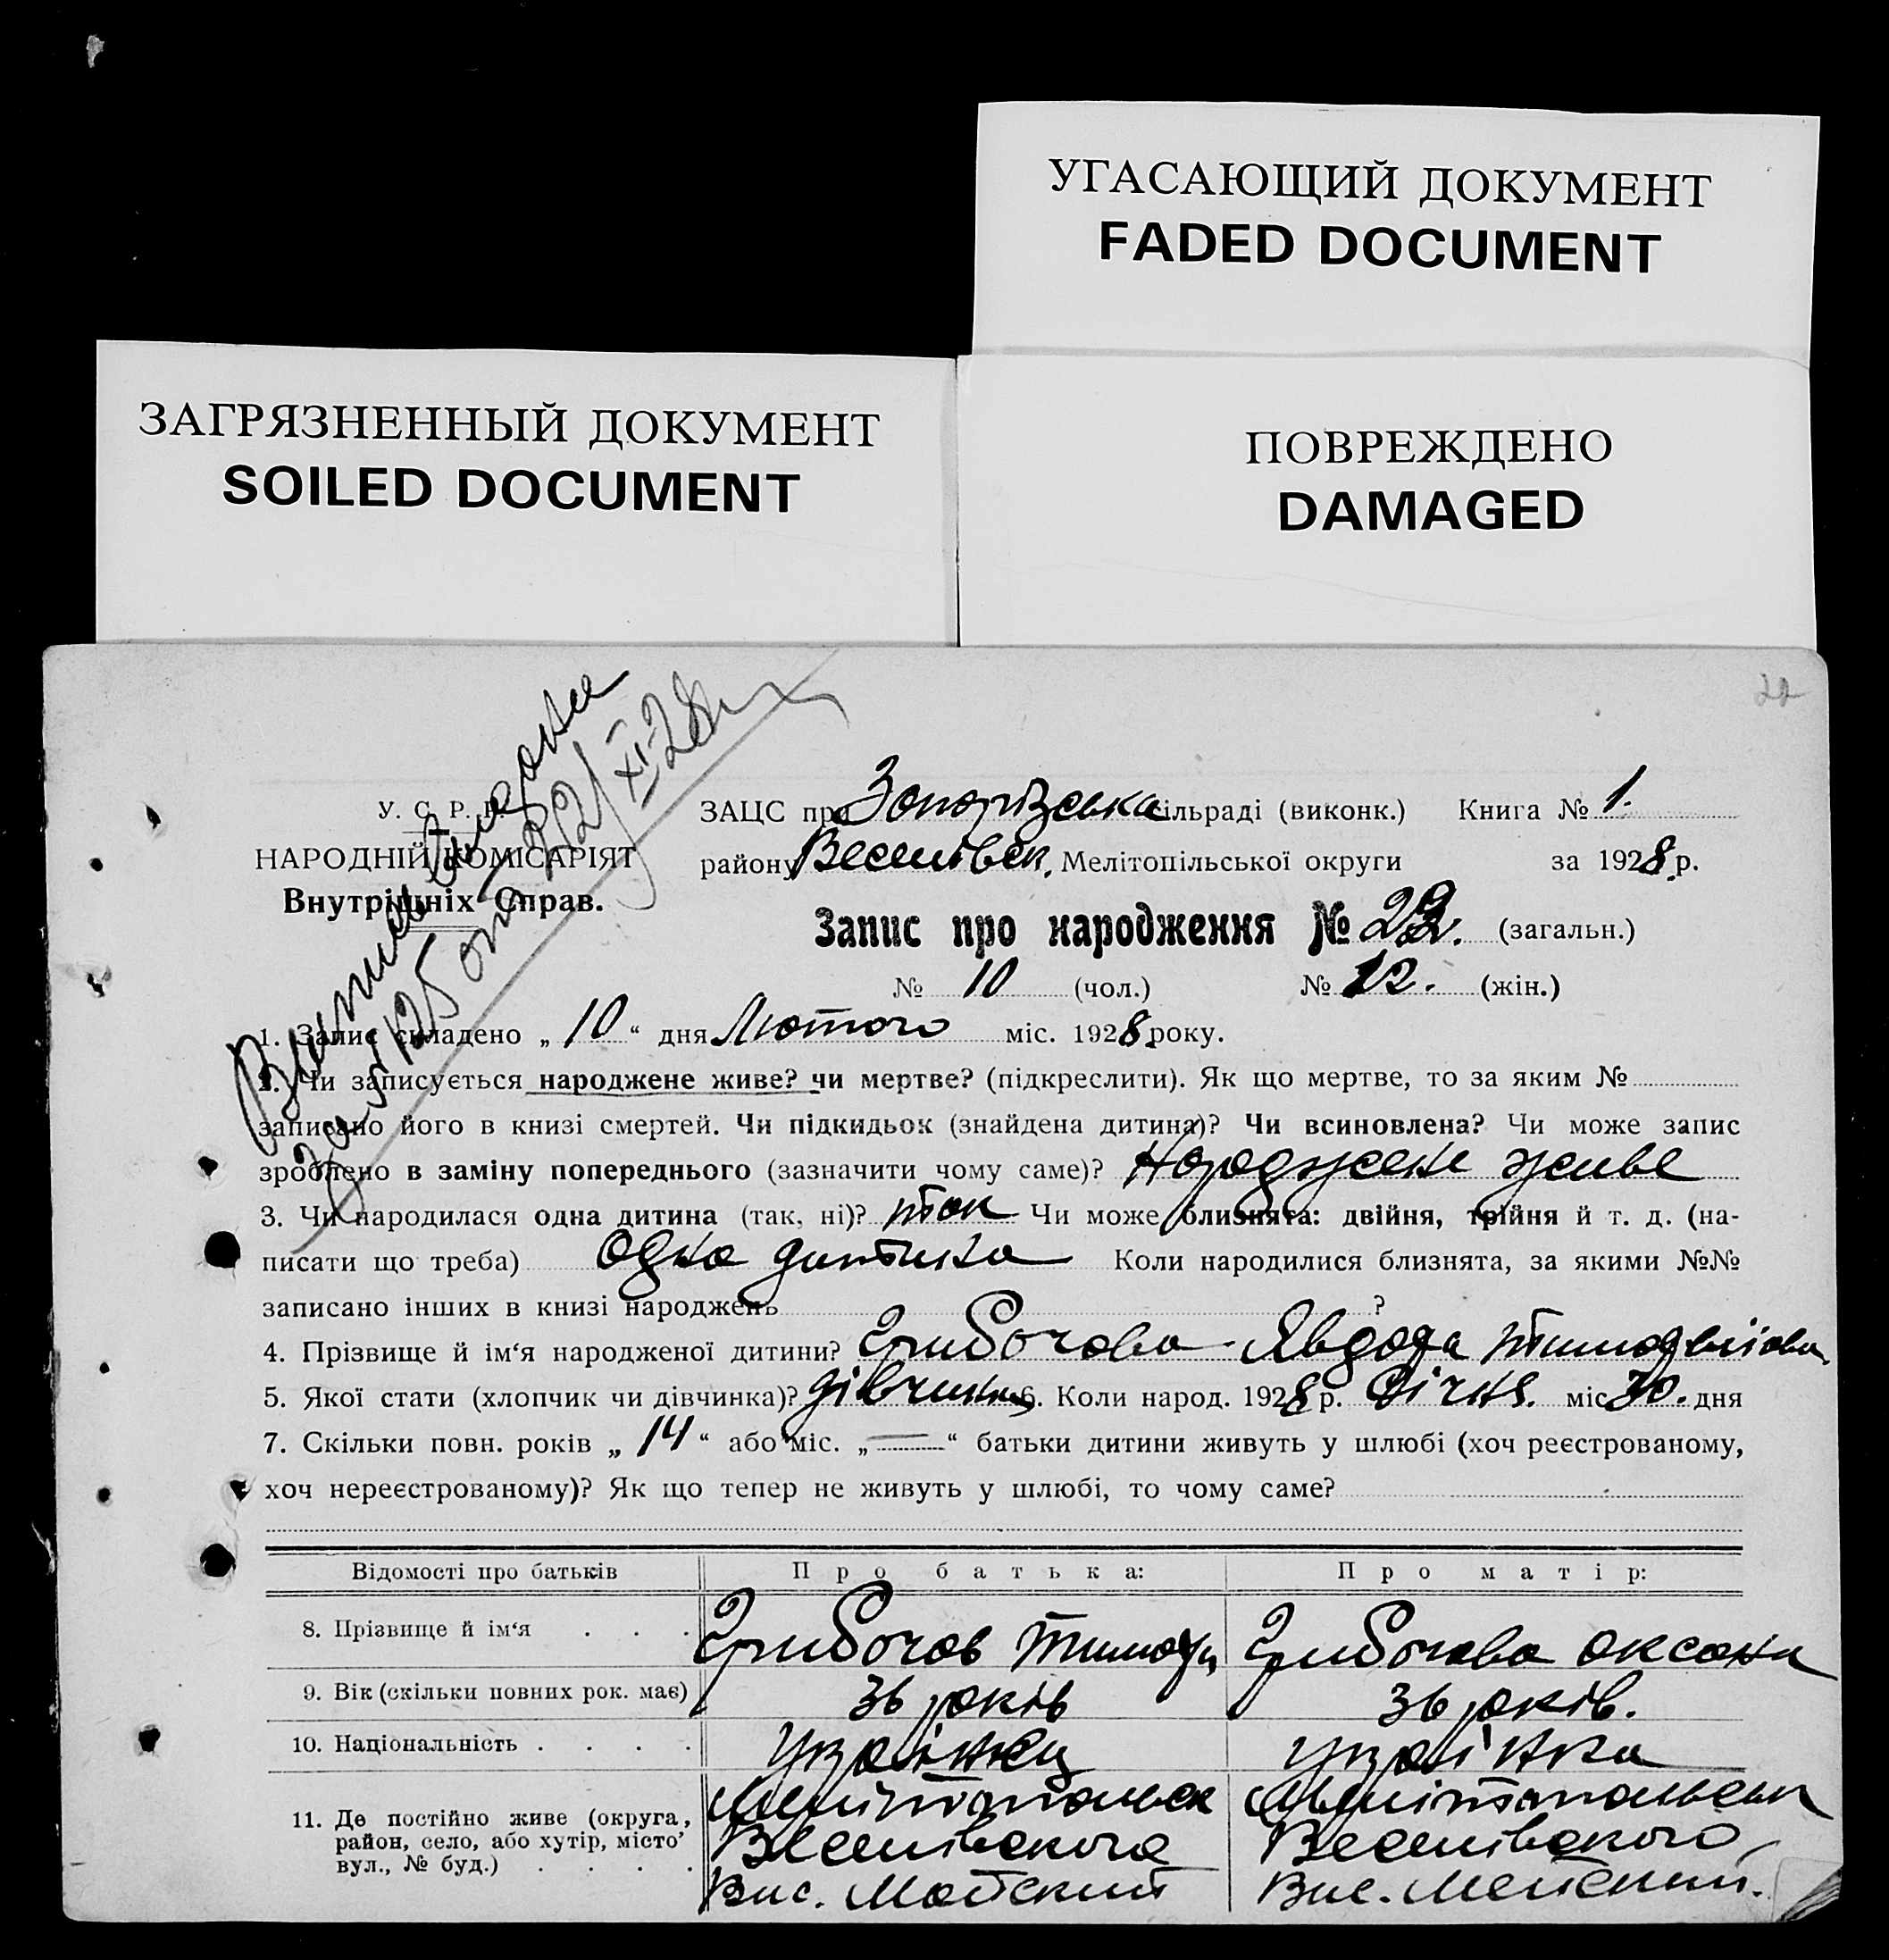 УГАСАЮЩИЙ ДОКУМЕНТ
FADED DOCUMENT
ЗАГРЯЗНЕННЫЙ ДОКУМЕНТ
SOILED DOCUMENT
ПОВРЕЖДЕНО
DAMAGED
22
У. С. Р. Р.
НАРОДНІЙ КОМІСАРІЯТ
Внутрішніх Справ.
за № 125 от 22/XI-28
ЗАЦС при Запорізська сільраді (виконк.) Книга № 1.
району Веселівськ. Мелітопільської округи за 1928 р.
Запис про народження № 22. (загальн.)
№ 10 (чол.) № 12. (жін.)
1. Запис складено „ 10 “ дня Лютого міс. 1928 року.
2. Чи записується народжене живе? чи мертве? (підкреслити). Як що мертве, то за яким №
записано його в книзі смертей. Чи підкидьок (знайдена дитина)? Чи всиновлена? Чи може запис
зроблено в заміну попереднього (зазначити чому саме)? Народжене живе
3. Чи народилася одна дитина (так, ні)? так Чи може близнята: двійня, трійня й т. д. (на-
писати що треба) Одна дитина Коли народилися близнята, за якими №№
записано інших в книзі народжень ?
4. Прізвище й ім‘я народженої дитини? Грибочова Явдоха
5. Якої стати (хлопчик чи дівчинка)? дівчинка 6. Коли народ. 1928 р. Січня. міс. 30. дня
7. Скільки повн. років „ 14 “ або міс. „ — “ батьки дитини живуть у шлюбі (хоч реєстрованому,
хоч нереєстрованому)? Як що тепер не живуть у шлюбі, то чому саме?
Відомості про батьків Про батька: Про матір:
8. Прізвище й ім‘я . . . Грибочов Тимофи Грибочова Оксана
9. Вік (скільки повних рок. має) 36 років 36 років.
10. Національність . . . . Українец Українка
11. Де постійно живе (округа, Мелітопольск Мелітопольськ
район, село, або хутір, місто’ Веселівского Веселівского
вул., № буд.) . . . . Вис. Майский Вис. Майский.